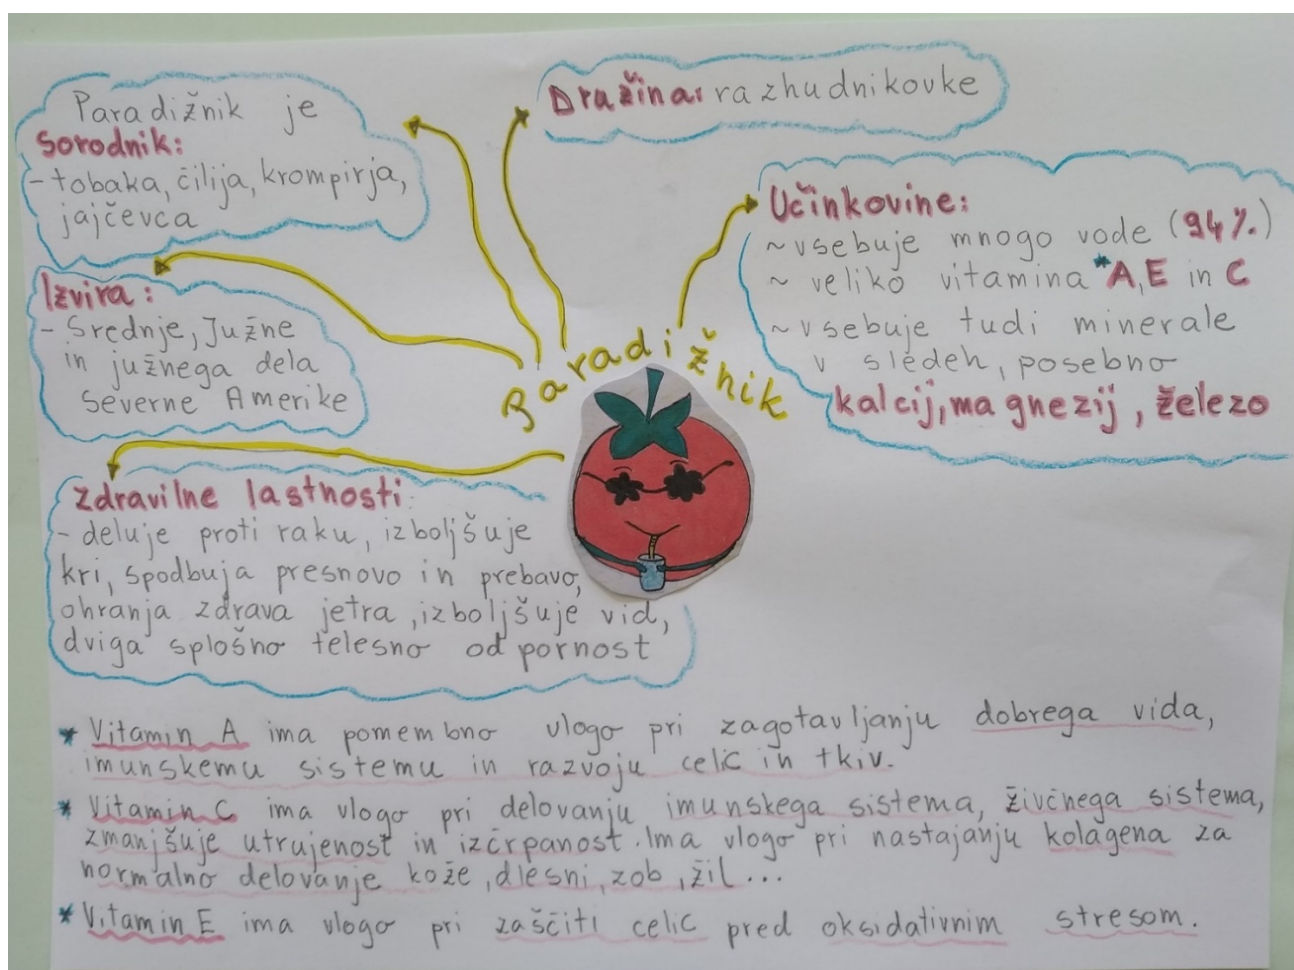 Paradižnik je
sorodnik:
- tobaka, čilija, krompirja,
jajčevca
Družina: razhudnikovke
Učinkovine:
~ vsebuje mnogo vode (94%)
~ veliko vitamina *A, E in C
~ vsebuje tudi minerale
v sledeh, posebno
kalcij, magnezij, železo
Izvira:
- Srednje, Južne
in južnega dela
Severne Amerike
Paradižnik
Zdravilne lastnosti:
- deluje proti raku, izboljšuje
kri, spodbuja presnovo in prebavo,
ohranja zdrava jetra, izboljšuje vid,
dviga splošno telesno odpornost
* Vitamin A ima pomembno vlogo pri zagotavljanju dobrega vida,
imunskemu sistemu in razvoju celic in tkiv.
* Vitamin C ima vlogo pri delovanju imunskega sistema, živčnega sistema,
zmanjšuje utrujenost in izčrpanost. Ima vlogo pri nastajanju kolagena za
normalno delovanje kože, dlesni, zob, žil...
* Vitamin E ima vlogo pri zaščiti celic pred oksidativnim stresom.